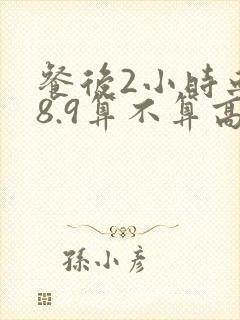 餐後2小時
8.9算不算高
孫小彥